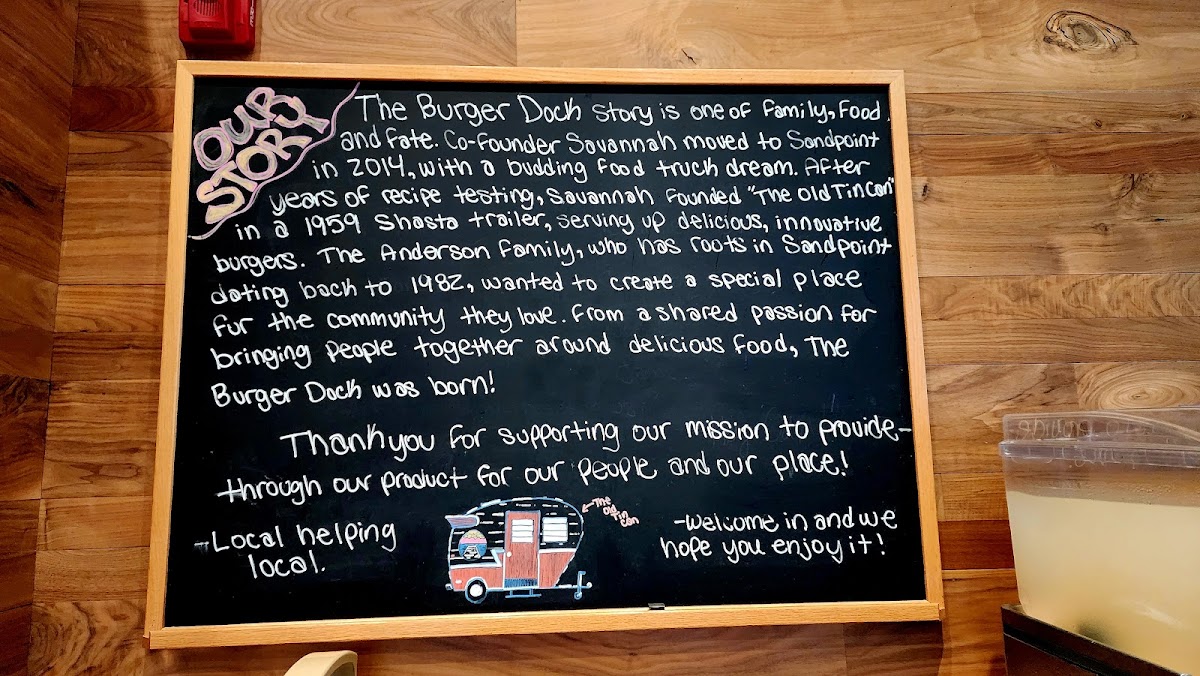 OUR
STORY
The Burger Dock Story is one of Family, Food,
and Fate. Co-Founder Savannah moved to Sandpoint
in 2014, with a budding food truck dream. After
years of recipe testing, Savannah Founded "The Old Tin Can"
in a 1959 Shasta trailer, serving up delicious, innovative
burgers. The Anderson Family, who has roots in Sandpoint
dating back to 1982, wanted to create a special place
for the community they love. From a shared passion for
bringing people together around delicious food, The
Burger Dock was born!
Thank you for supporting our mission to provide-
through our product for our people and our place!
-Local helping
local.
The
Old Tin
Can
-Welcome in and we
hope you enjoy it!